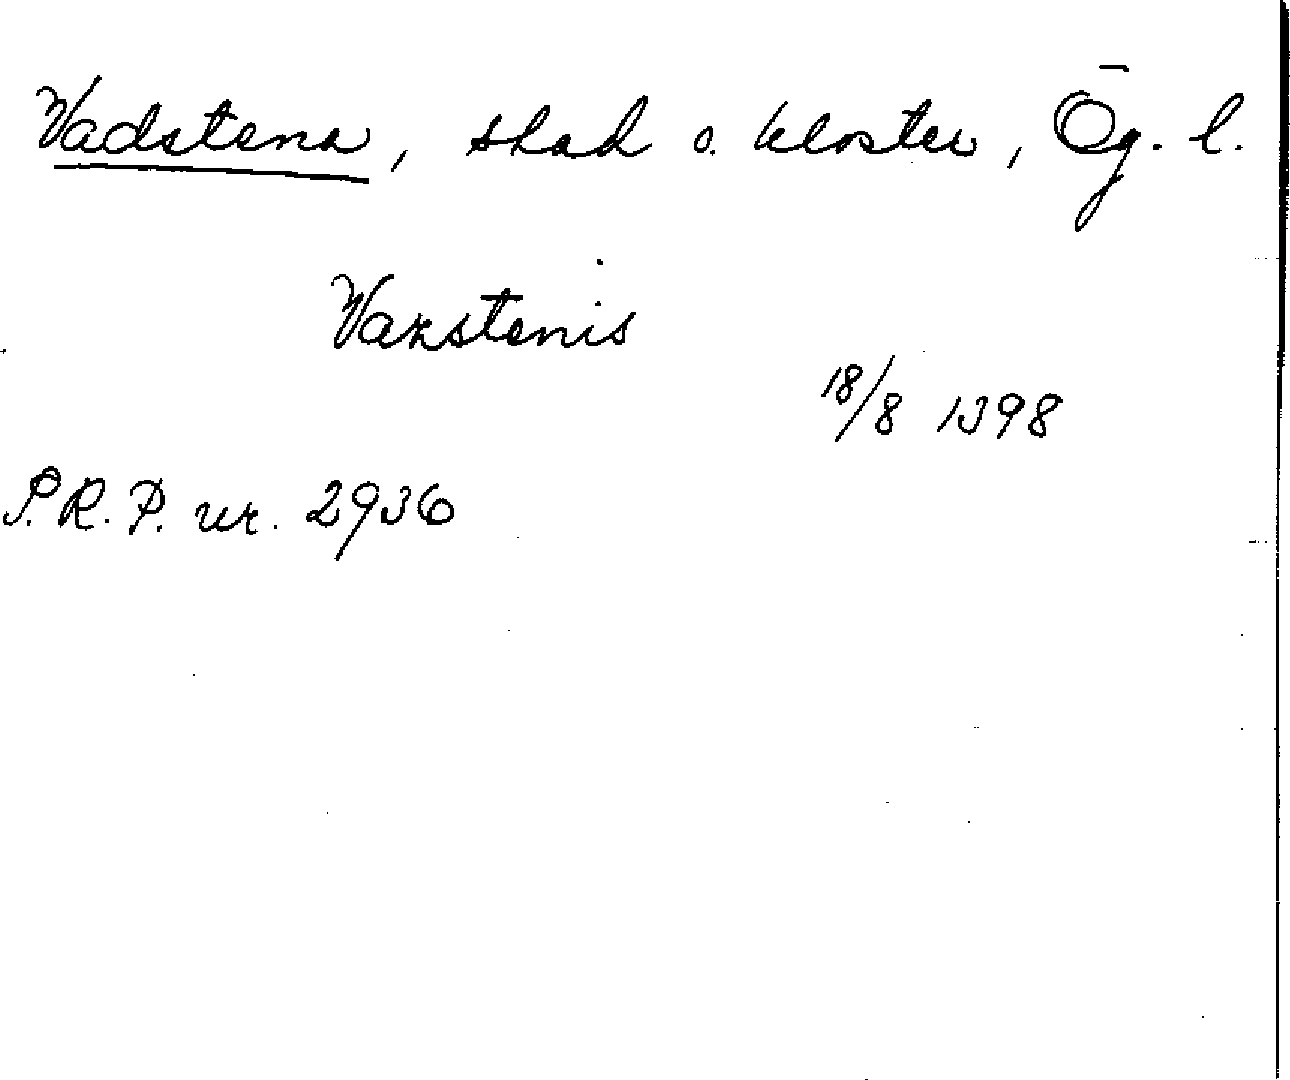 Vadstena, stad o. kloster, Ög. l.
Vazstenis
18/8 1398
S.R.P. nr. 2936